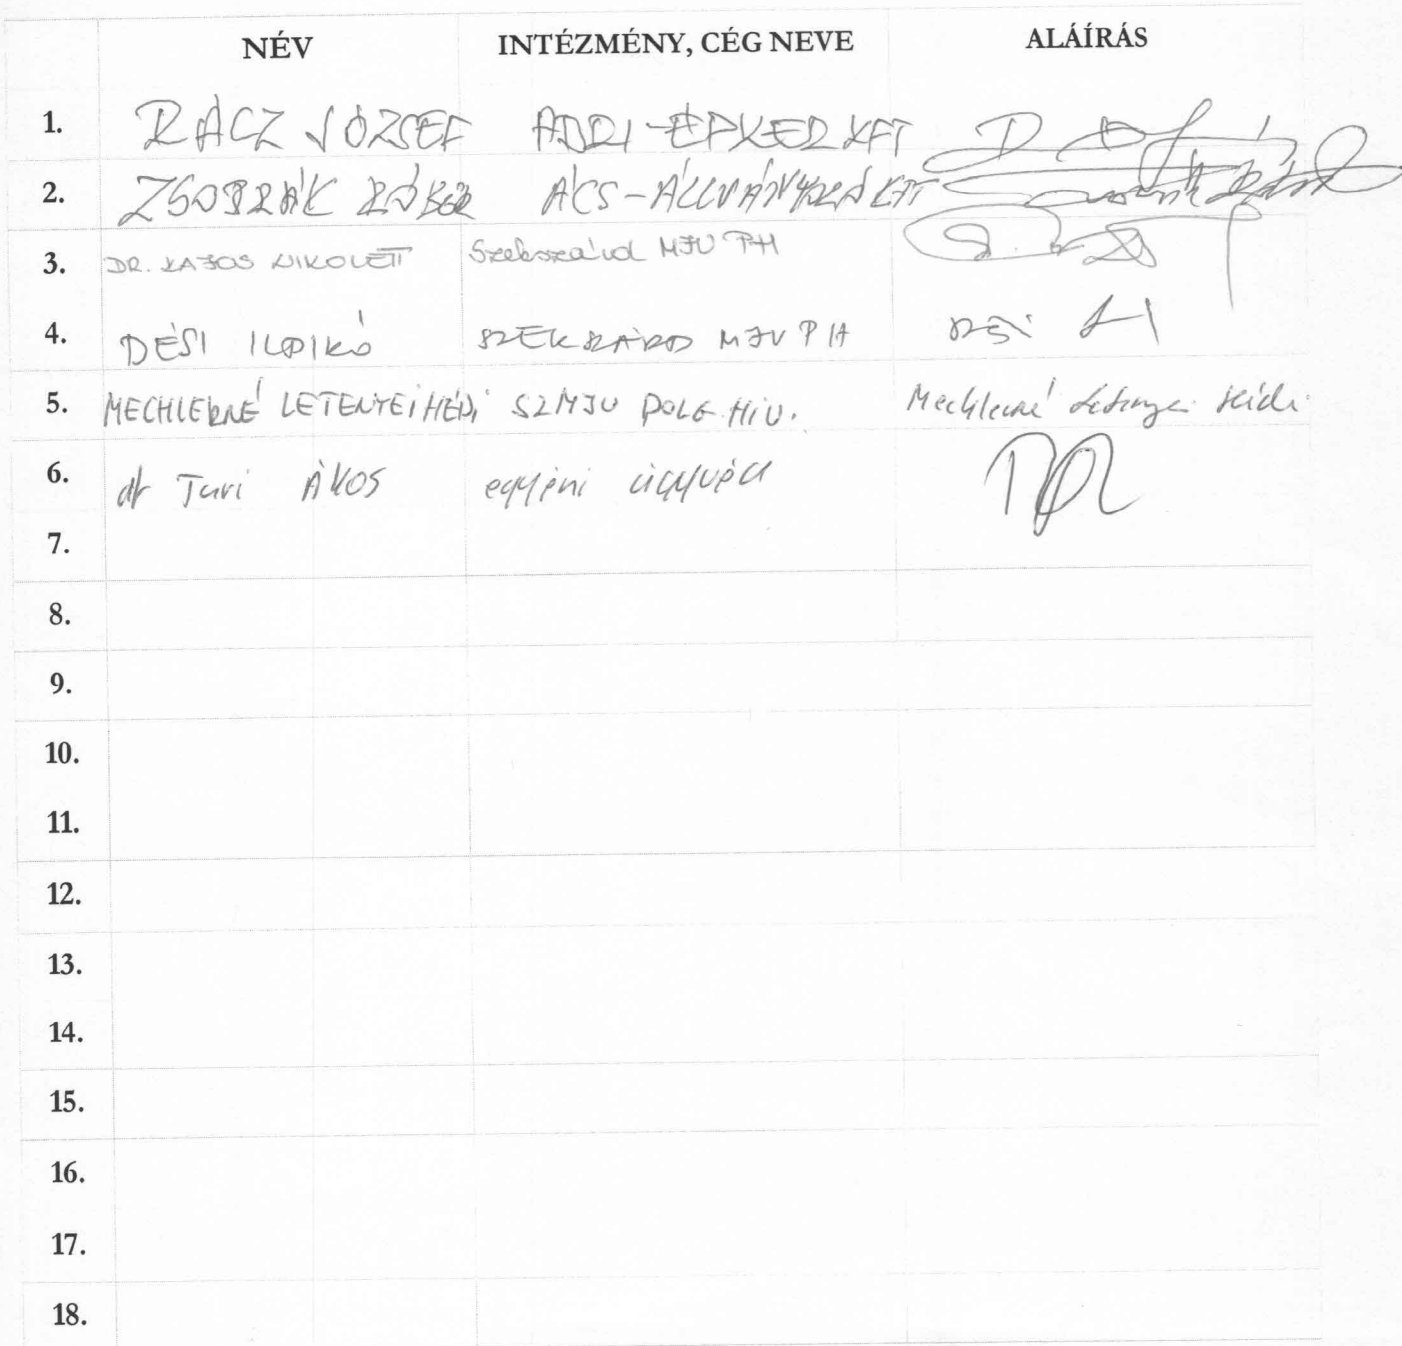 NÉV INTÉZMÉNY, CÉG NEVE ALÁÍRÁS
1. RÁCZ JÓZSEF ADRI-ÉPKER KFT
2. ÁCS-
3. DR. KAJOS NIKOLETT Szekszárd MJV PH
4. DÉSI ILDIKÓ SZEKSZÁRD MJV PH
5. MECHLERNÉ LETENYEI HÉDI SZMJV POLG. HIV. Mechlerné Letenyei Hédi
6. dr Turi ÁKOS egyéni ügyvéd
7.
8.
9.
10.
11.
12.
13.
14.
15.
16.
17.
18.